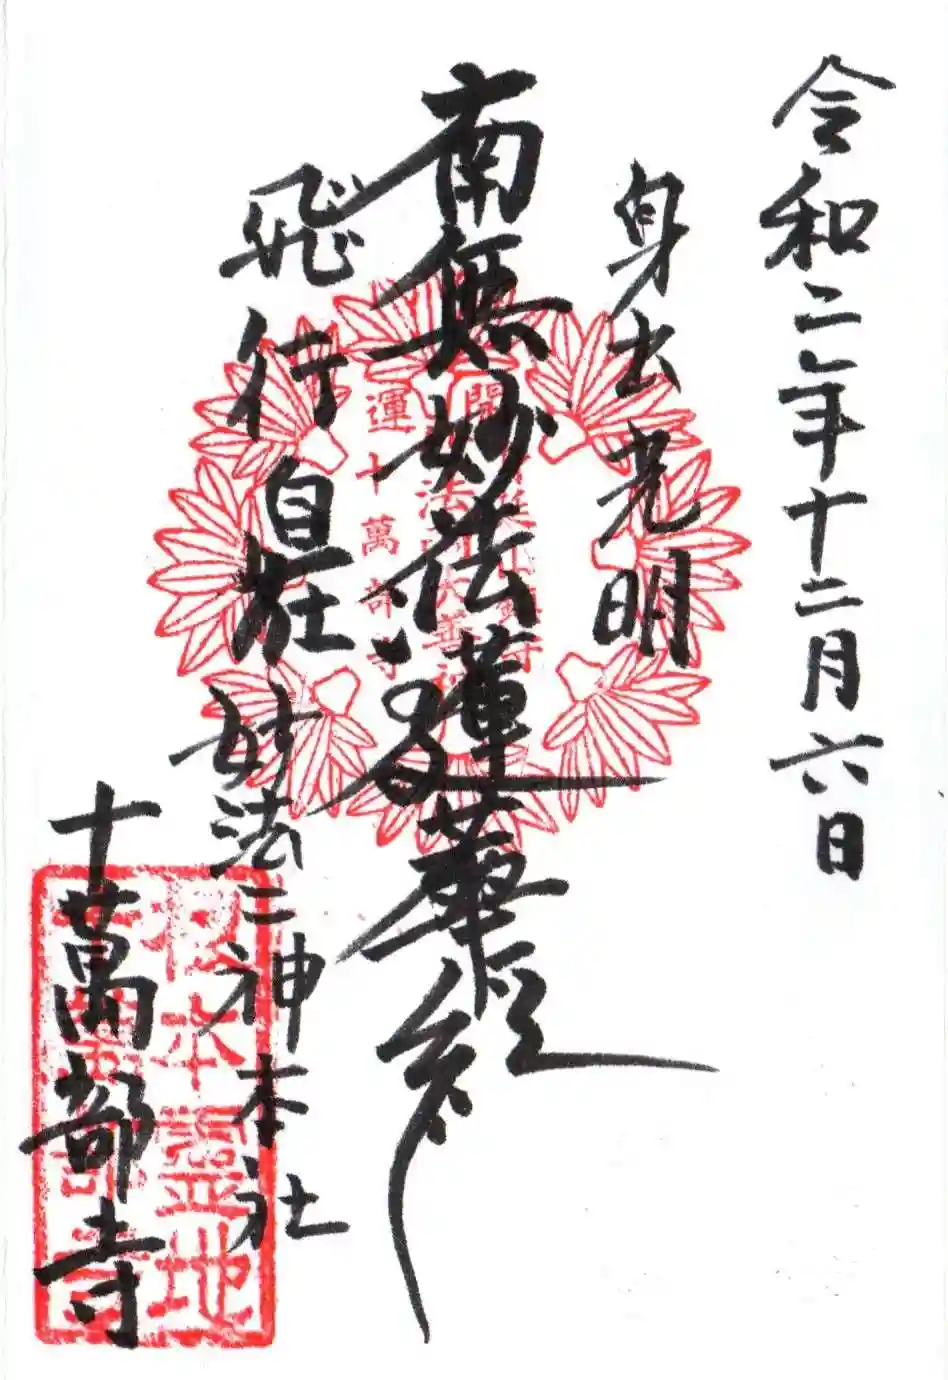 令和二年十二月六日
身出光明
南無妙法蓮華経
飛行自在
妙法二神本社
十萬部寺
運十萬部寺
根本霊地